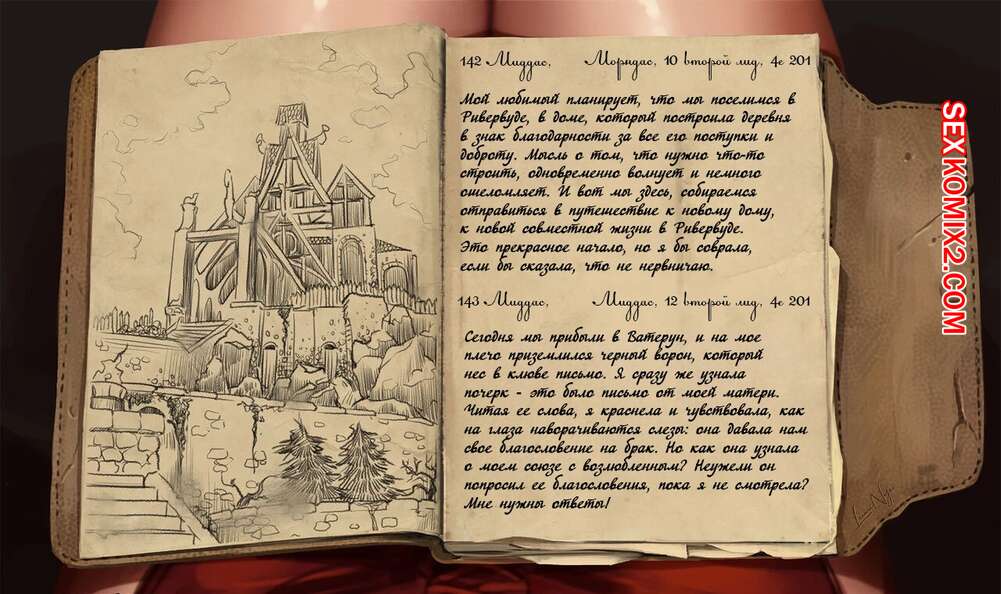 142 Миддас, Морндас, 10 второй мид, 4е 201
Мой любимый планирует, что мы поселимся в
Ривервуде, в доме, который построила деревня
в знак благодарности за все его поступки и
доброту. Мысль о том, что нужно что-то
строить, одновременно волнует и немного
ошеломляет. И вот мы здесь, собираемся
отправиться в путешествие к новому дому,
к новой совместной жизни в Ривервуде.
Это прекрасное начало, но я бы соврала,
если бы сказала, что не нервничаю.
143 Миддас, Миддас, 12 второй мид, 4е 201
Сегодня мы прибыли в Ватерун, и на мое
плечо приземлился черный ворон, который
нес в клюве письмо. Я сразу же узнала
почерк - это было письмо от моей матери.
Читая ее слова, я краснела и чувствовала, как
на глаза наворачиваются слезы: она давала нам
свое благословение на брак. Но как она узнала
о моем союзе с возлюбленным? Неужели он
попросил ее благословения, пока я не смотрела?
Мне нужны ответы!
SEXKOMIX2.COM